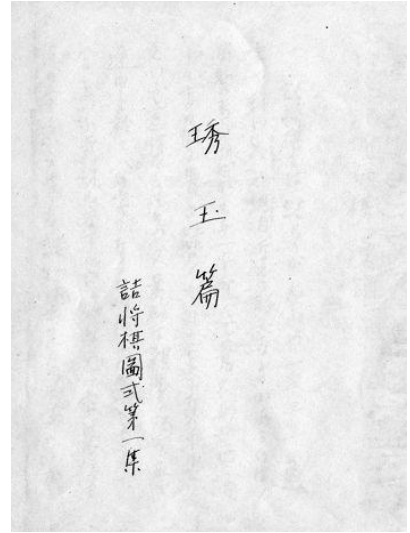 琇玉篇
詰将棋圖式第一集